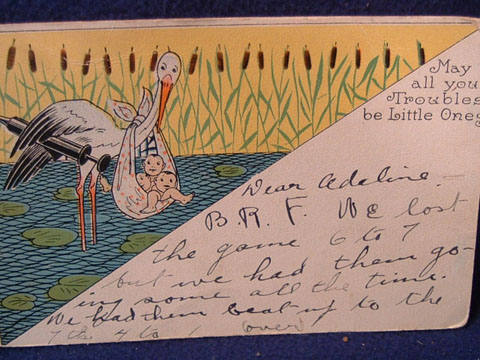 May
all you
Troubles
be Little Ones
Dear Adaline. –
B. R. F. We lost
the game 6 to 7
but we had them go-
ing some all the time.
We had them beat up to the
7th 4 to 1 (over)